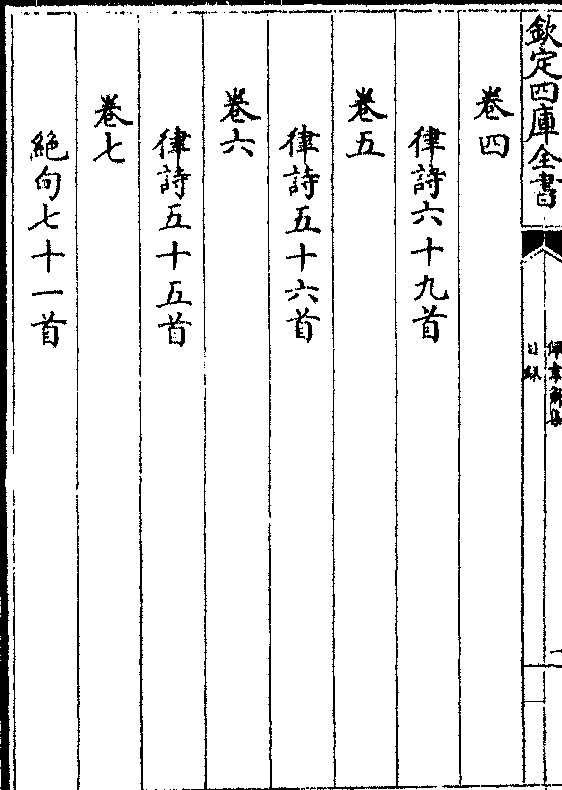 欽定四庫全書
佩韋齋集
目錄
卷四
律詩六十九首
卷五
律詩五十六首
卷六
律詩五十五首
卷七
絶句七十一首